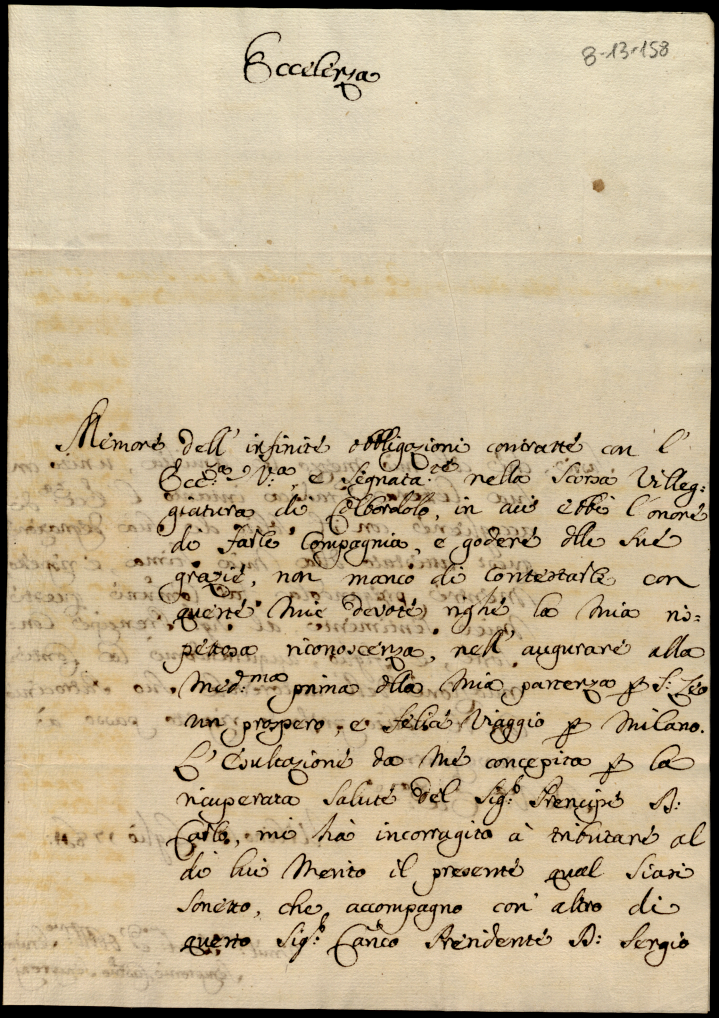 8-13-158
Eccelenza
Memore dell' infinite obbligazioni contratte con l'
Ecc.za V.ra, e segnata.te nella scorsa Villeg=
giatura di Colbordolo, in cui ebbi l'onore
di farle Compagnia, e godere delle sue
grazie, non manco di contestarle con
queste mie devote righe la mia ris=
pettosa riconoscenza, nell' augurare alla
Med.ma prima della mia partenza p S: Leo
un prospero, e felice Viaggio p Milano.
L'esultazione da me concepita p la
ricuperata salute del Sig.r Prencipe D:
Carlo, mi hà incorragito à tributare al
di lui Merito il presente qual siasi
sonetto, che accompagno con altro di
questo Sig.r Canco Presidente D: Sergio